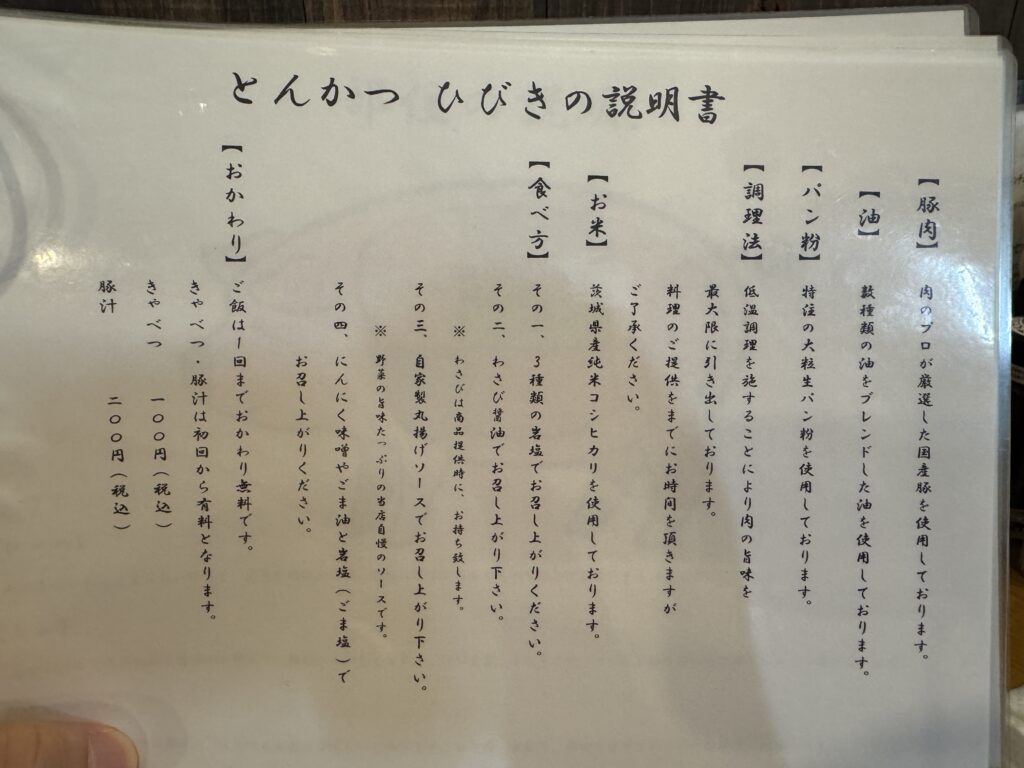 とんかつ ひびきの説明書
【豚肉】 肉のプロが厳選した国産豚を使用しております。
【油】 数種類の油をブレンドした油を使用しております。
【パン粉】 特注の大粒生パン粉を使用しております。
【調理法】 低温調理を施することにより肉の旨味を
最大限に引き出しております。
料理のご提供をまでにお時間を頂きますが
ご了承ください。
【お米】 茨城県産純米コシヒカリを使用しております。
【食べ方】 その一、3種類の岩塩でお召し上がりください。
その二、わさび醤油でお召し上がり下さい。
※ わさびは商品提供時に、お持ち致します。
その三、自家製丸揚げソースでお召し上がり下さい。
※ 野菜の旨味たっぷりの当店自慢のソースです。
その四、にんにく味噌やごま油と岩塩(ごま塩)で
お召し上がりください。
【おかわり】 ご飯は1回までおかわり無料です。
きゃべつ・豚汁は初回から有料となります。
きゃべつ 一〇〇円(税込)
豚汁 二〇〇円(税込)